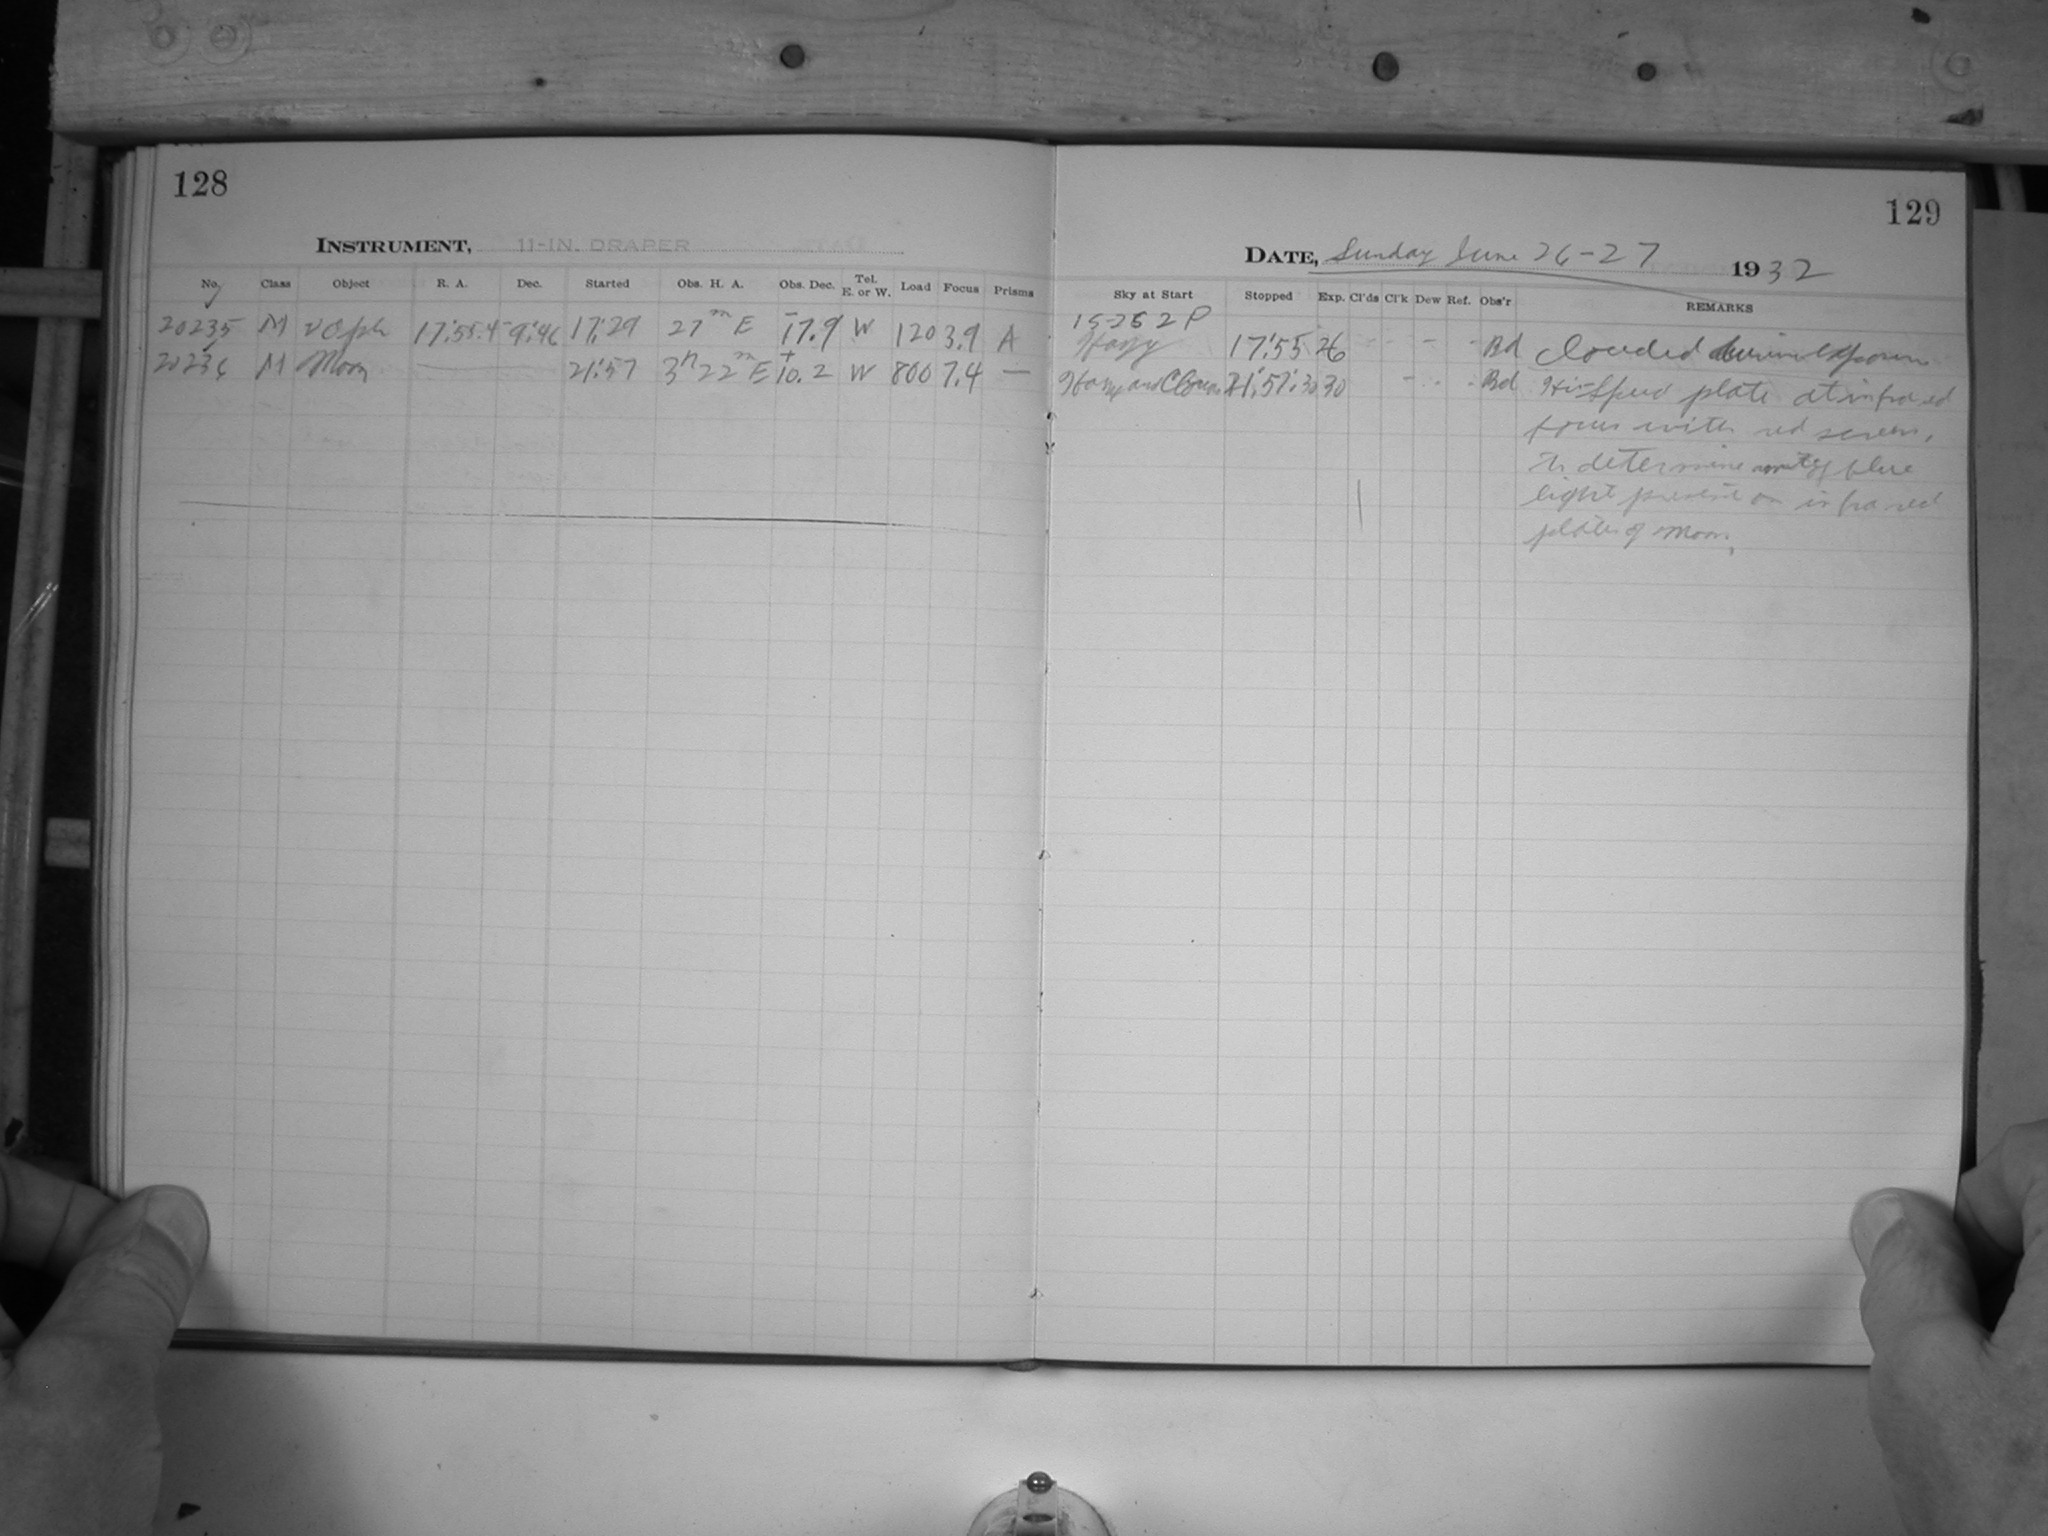 128
129
INSTRUMENT, 11-IN. DRAPER
DATE, Sunday June 26-27 1932
No. Class Object R. A. Dec. Started Obs. H. A. Obs. Dec. Tel. E. or W. Load Focus Prisms Sky at Start Stopped Exp. Cl'ds Cl'k Dew Ref. Obs'r REMARKS
15-25 2 P
20235 M ν Oph 17:55.4 -9:46 17:29 27m E -17.9 W 120 3.9 A Hazy 17:55 26 - - Bd Clouded during exposure
20236 M Moon — 21:57 3h 22m E +10.2 W 800 7.4 — Hazy and 21:57:30 30 - Bd Hi-Speed plate at infra red
focus with red screen,
to determine of blue
light present on infra red
plate of Moon.